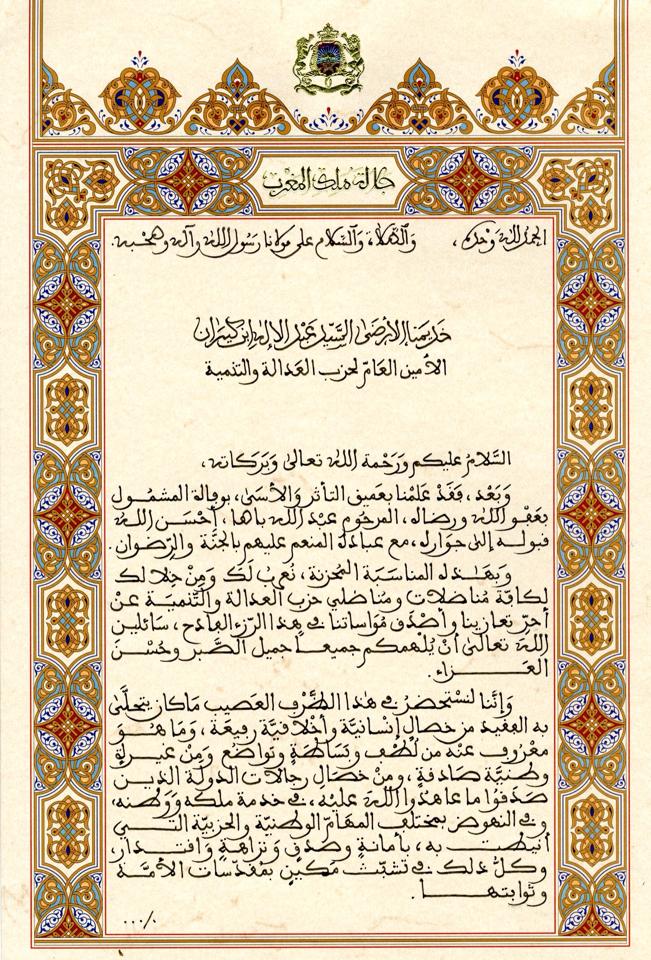 جلالة ملك المغرب
الحمد لله وحده، والصلاة والسلام على مولانا رسول الله وآله وصحبه.
خديمنا الأرضى السيد عبد الإله ابن كيران
الأمين العام لحزب العدالة والتنمية
السلام عليكم ورحمة الله تعالى وبركاته،
وبعد، فقد علمنا بعميق التأثر والأسى، بوفاة المشمول
بعفو الله ورضاه، المرحوم عبد الله باها، أحسن الله
قبوله إلى جواره، مع عباده المنعم عليهم بالجنة والرضوان.
وبهذه المناسبة المحزنة، نعرب لك ومن خلالك
لكافة مناضلات ومناضلي حزب العدالة والتنمية عن
أحر تعازينا وأصدق مواساتنا في هذا الرزء الفادح، سائلين
الله تعالى أن يلهمكم جميعا جميل الصبر وحسن
العزاء.
وإننا لنستحضر في هذا الظرف العصيب ما كان يتحلى
به الفقيد من خصال إنسانية وأخلاقية رفيعة، وما هو
معروف عنه من لطف وبساطة وتواضع ومن غيرة
وطنية صادقة، ومن خصال رجالات الدولة الذين
صدقوا ما عاهدوا الله عليه، في خدمة ملكه ووطنه،
وفي النهوض بمختلف المهام الوطنية والحزبية التي
أنيطت به، بأمانة وصدق ونزاهة واقتدار،
وكل ذلك في تشبث مكين بمقدسات الأمة
وثوابتها.
.../.